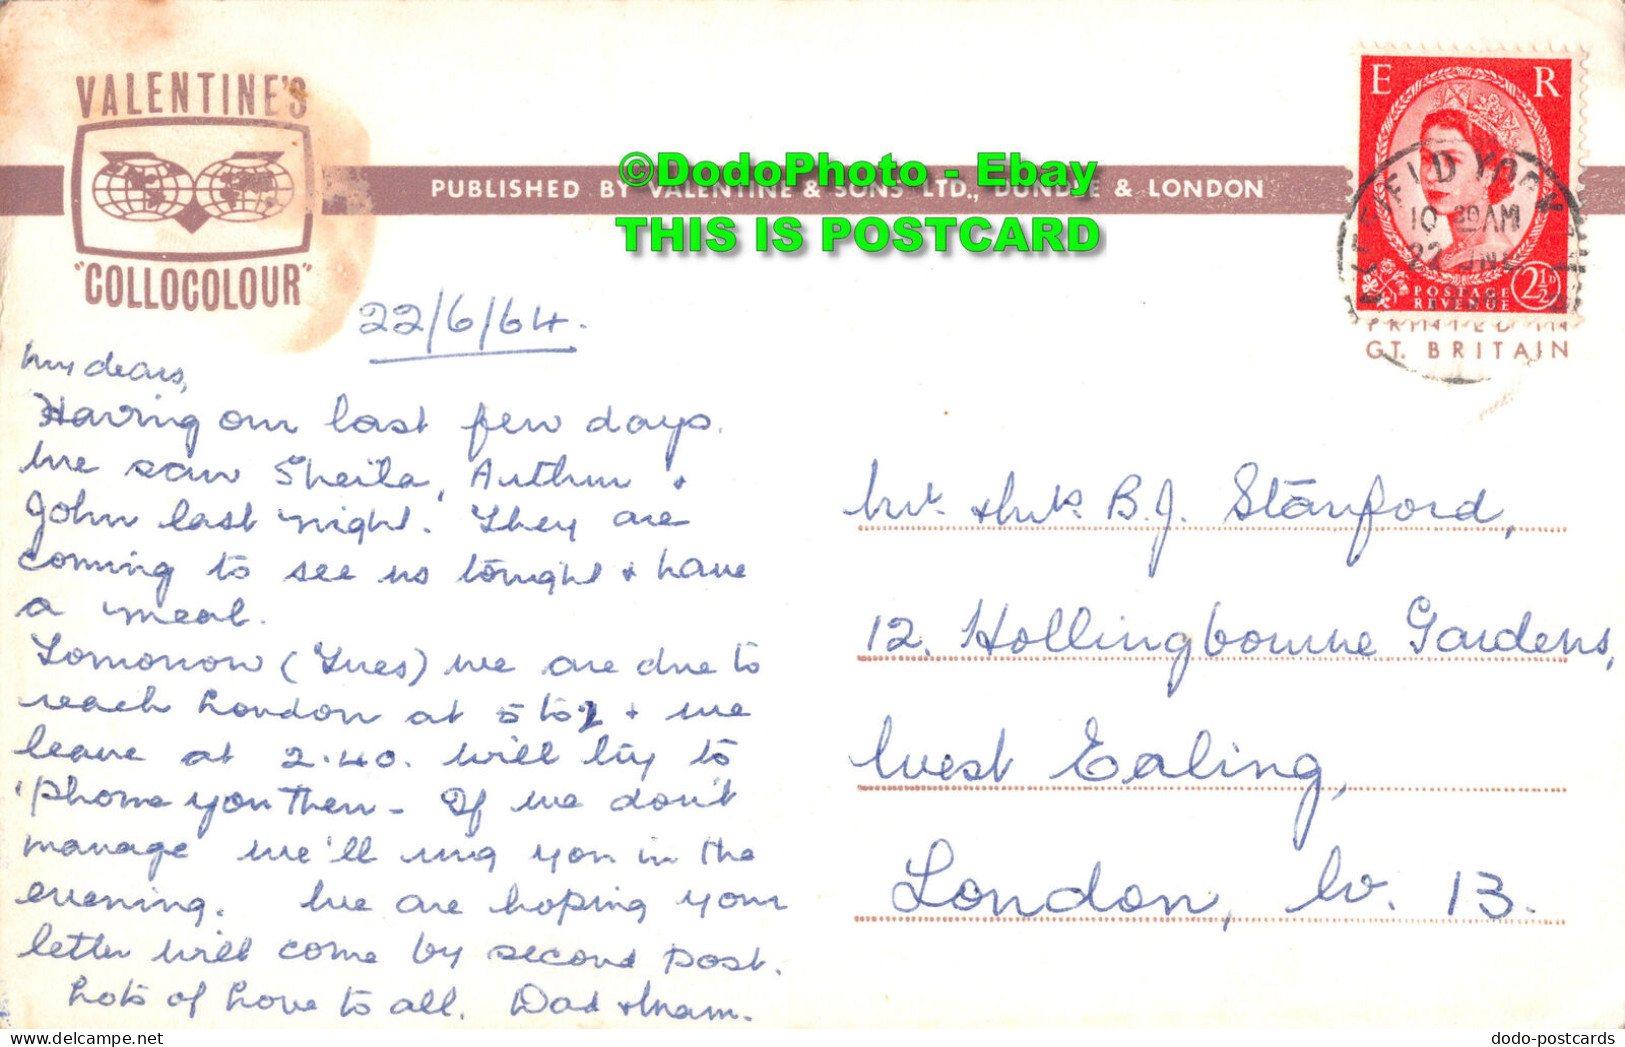 VALENTINE'S
"COLLOCOLOUR"
PUBLISHED BY VALENTINE & SONS LTD., DUNDEE & LONDON
©DodoPhoto - Ebay
THIS IS POSTCARD
E R
POSTAGE
REVENUE
2½D
FIELD YORK
10 30AM
22 JNE
PRINTED IN
GT. BRITAIN
22/6/64.
My dears,
Having our last few days.
We saw Sheila, Arthur +
John last night. They are
coming to see us tonight + have
a meal.
Tomorrow (Tues) we are due to
reach London at 5 to 2 + we
leave at 2.40. will try to
'phone you then - If we don't
manage we'll ring you in the
evening. We are hoping your
letter will come by second post.
Lots of Love to all. Dad + Mam.
Mr. & Mrs B.J. Stanford,
12. Hollingbourne Gardens,
West Ealing,
London, W. 13.
dodo-postcards